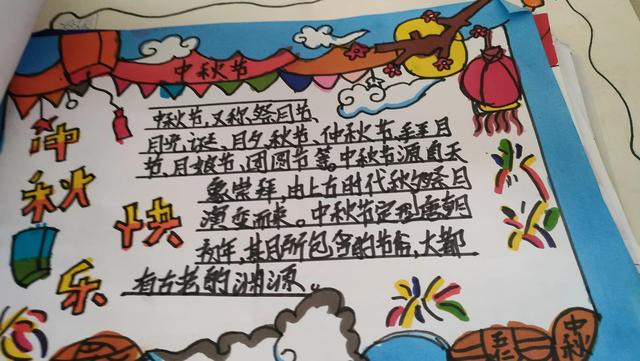 中秋节
仲
秋
快
乐
中秋节,又称祭月节、
月光诞、月夕、秋节、仲秋节、拜月
节、月娘节、团圆节等。中秋节源自天
象崇拜,由上古时代秋夕祭月
演变而来。中秋节定型唐朝
初年,其月所包含的节俗,大都
有古老的渊源。
中秋